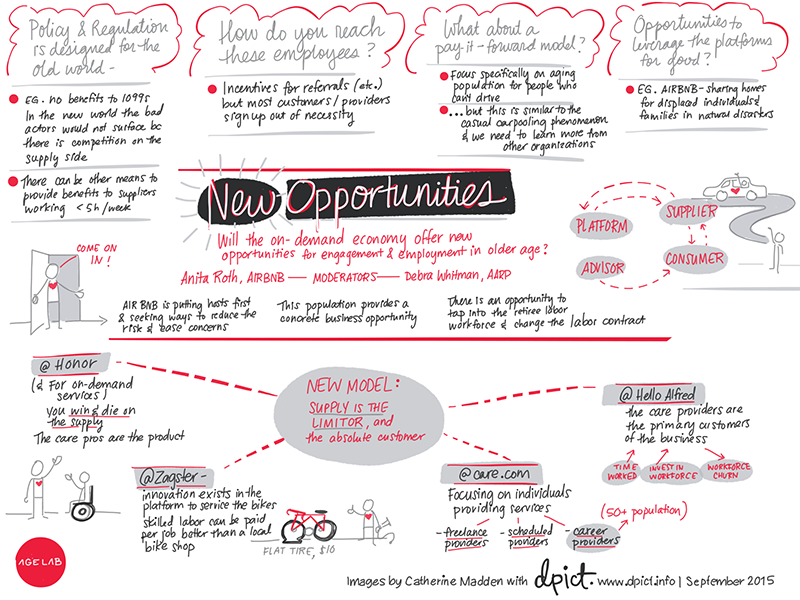 Policy & Regulation
is designed for the
old world -
EG. no benefits to 1099s
In the new world the bad
actors would not surface bc
there is competition on the
supply side
There can be other means to
provide benefits to suppliers
working <5h/week
How do you reach
these employees?
Incentives for referrals (etc.)
but most customers/providers
sign up out of necessity
What about a
pay-it-forward model?
Focus specifically on aging
population for people who
can't drive
...but this is similar to the
casual carpooling phenomenon
& we need to learn more from
other organizations
Opportunities to
leverage the platforms
for good?
EG. AIRBNB - sharing homes
for displaced individuals &
families in natural disasters
New Opportunities
Will the on-demand economy offer new
opportunities for engagement & employment in older age?
Anita Roth, AIRBNB — MODERATORS — Debra Whitman, AARP
COME ON
IN!
AIRBNB is putting hosts first
& seeking ways to reduce the
risk & base concerns
This population provides a
concrete business opportunity
There is an opportunity to
tap into the retiree labor
workforce & change the labor contract
PLATFORM
SUPPLIER
ADVISOR
CONSUMER
@Honor
(& For on-demand
services)
you win & die on
the supply
The care pros are the product
NEW MODEL:
SUPPLY IS THE
LIMITOR, and
the absolute customer
@Hello Alfred
the care providers are
the primary customers
of the business
TIME
WORKED
INVEST IN
WORKFORCE
WORKFORCE
CHURN
@Zagster -
innovation exists in the
platform to service the bikes
skilled labor can be paid
per job better than a local
bike shop
FLAT TIRE, $10
@care.com
Focusing on individuals
providing services
- freelance
providers
- scheduled
providers
- career
providers
(50+ population)
AGELAB
Images by Catherine Madden with dpict. www.dpict.info | September 2015